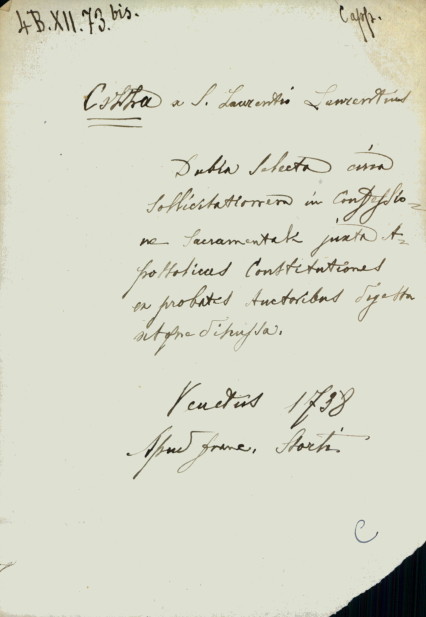 4 B. XII. 73. bis.
Capp.
Cotta a S. Laurentio Laurentius
Dubia Selecta circa
Sollicitationem in Confessio=
ne Sacramentali juxta A=
postolicas Constitutiones
ex probatis Auctoribus digesta
atque discussa.
Venetiis 1738
Apud Franc. Storti
C